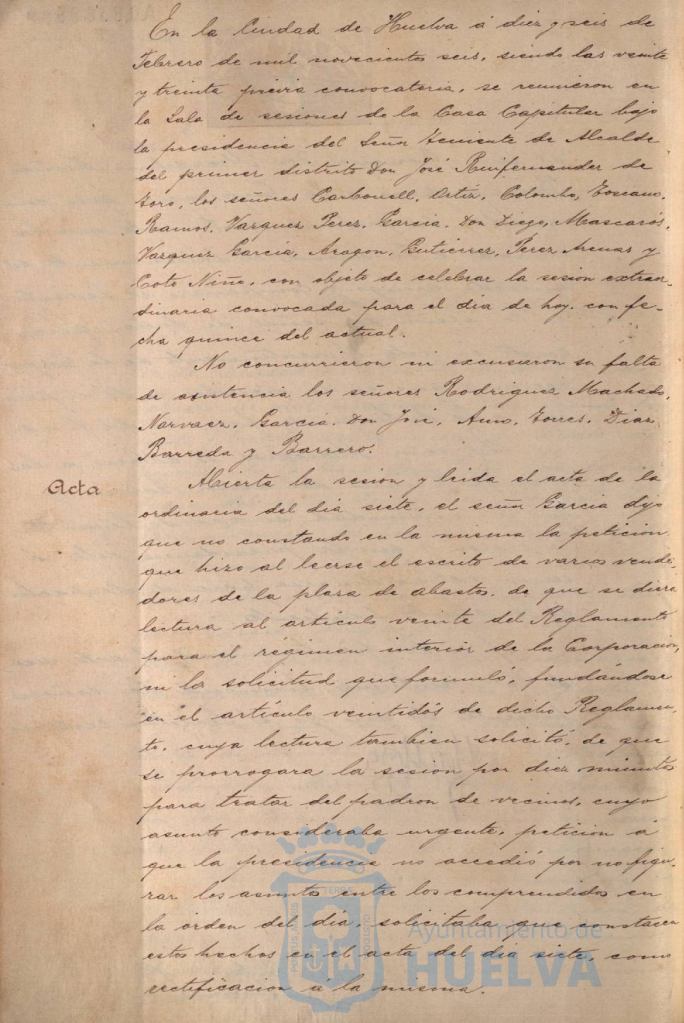 En la Ciudad de Huelva á diez y seis de
Febrero de mil novecientos seis, siendo las veinte
y treinta previa convocatoria, se reunieron en
la Sala de sesiones de la Casa Capitular bajo
la presidencia del Señor Teniente de Alcalde
del primer distrito Don José Ruifernandez de
Toro, los señores Carbonell, Ortiz, Colombo, Toscano,
Ramos, Vazquez Perez, Garcia, Don Diego, Mascarós,
Vazquez Garcia, Aragon, Gutierrez, Perez Arenas y
Coto Niño, con objeto de celebrar la sesion extraor-
dinaria convocada para el dia de hoy, con fe-
cha quince del actual.
No concurrieron ni excusaron su falta
de asistencia los señores Rodriguez Machado,
Narvaez, Garcia, Don José, Torres, Diaz,
Barreda y Barrero.
Acta
Abierta la sesion y leida el acta de la
ordinaria del dia siete, el señor Garcia dijo
que no constando en la misma la peticion
que hizo al leerse el escrito de varios vende-
dores de la plaza de abastos, de que se diera
lectura al artículo veinte del Reglamento
para el régimen interior de la Corporacion,
ni la solicitud que formuló, fundándose
en el artículo veintidós de dicho Reglamen-
to, cuya lectura tambien solicitó, de que
se prorrogara la sesion por diez minutos
para tratar del padron de vecinos, cuyo
asunto consideraba urgente, peticion á
que la presidencia no accedió por no figu-
rar los asuntos entre los comprendidos en
la orden del dia, solicitaba que constasen
estos hechos en el acta del dia siete, como
rectificacion á la misma.
Ayuntamiento de
HUELVA